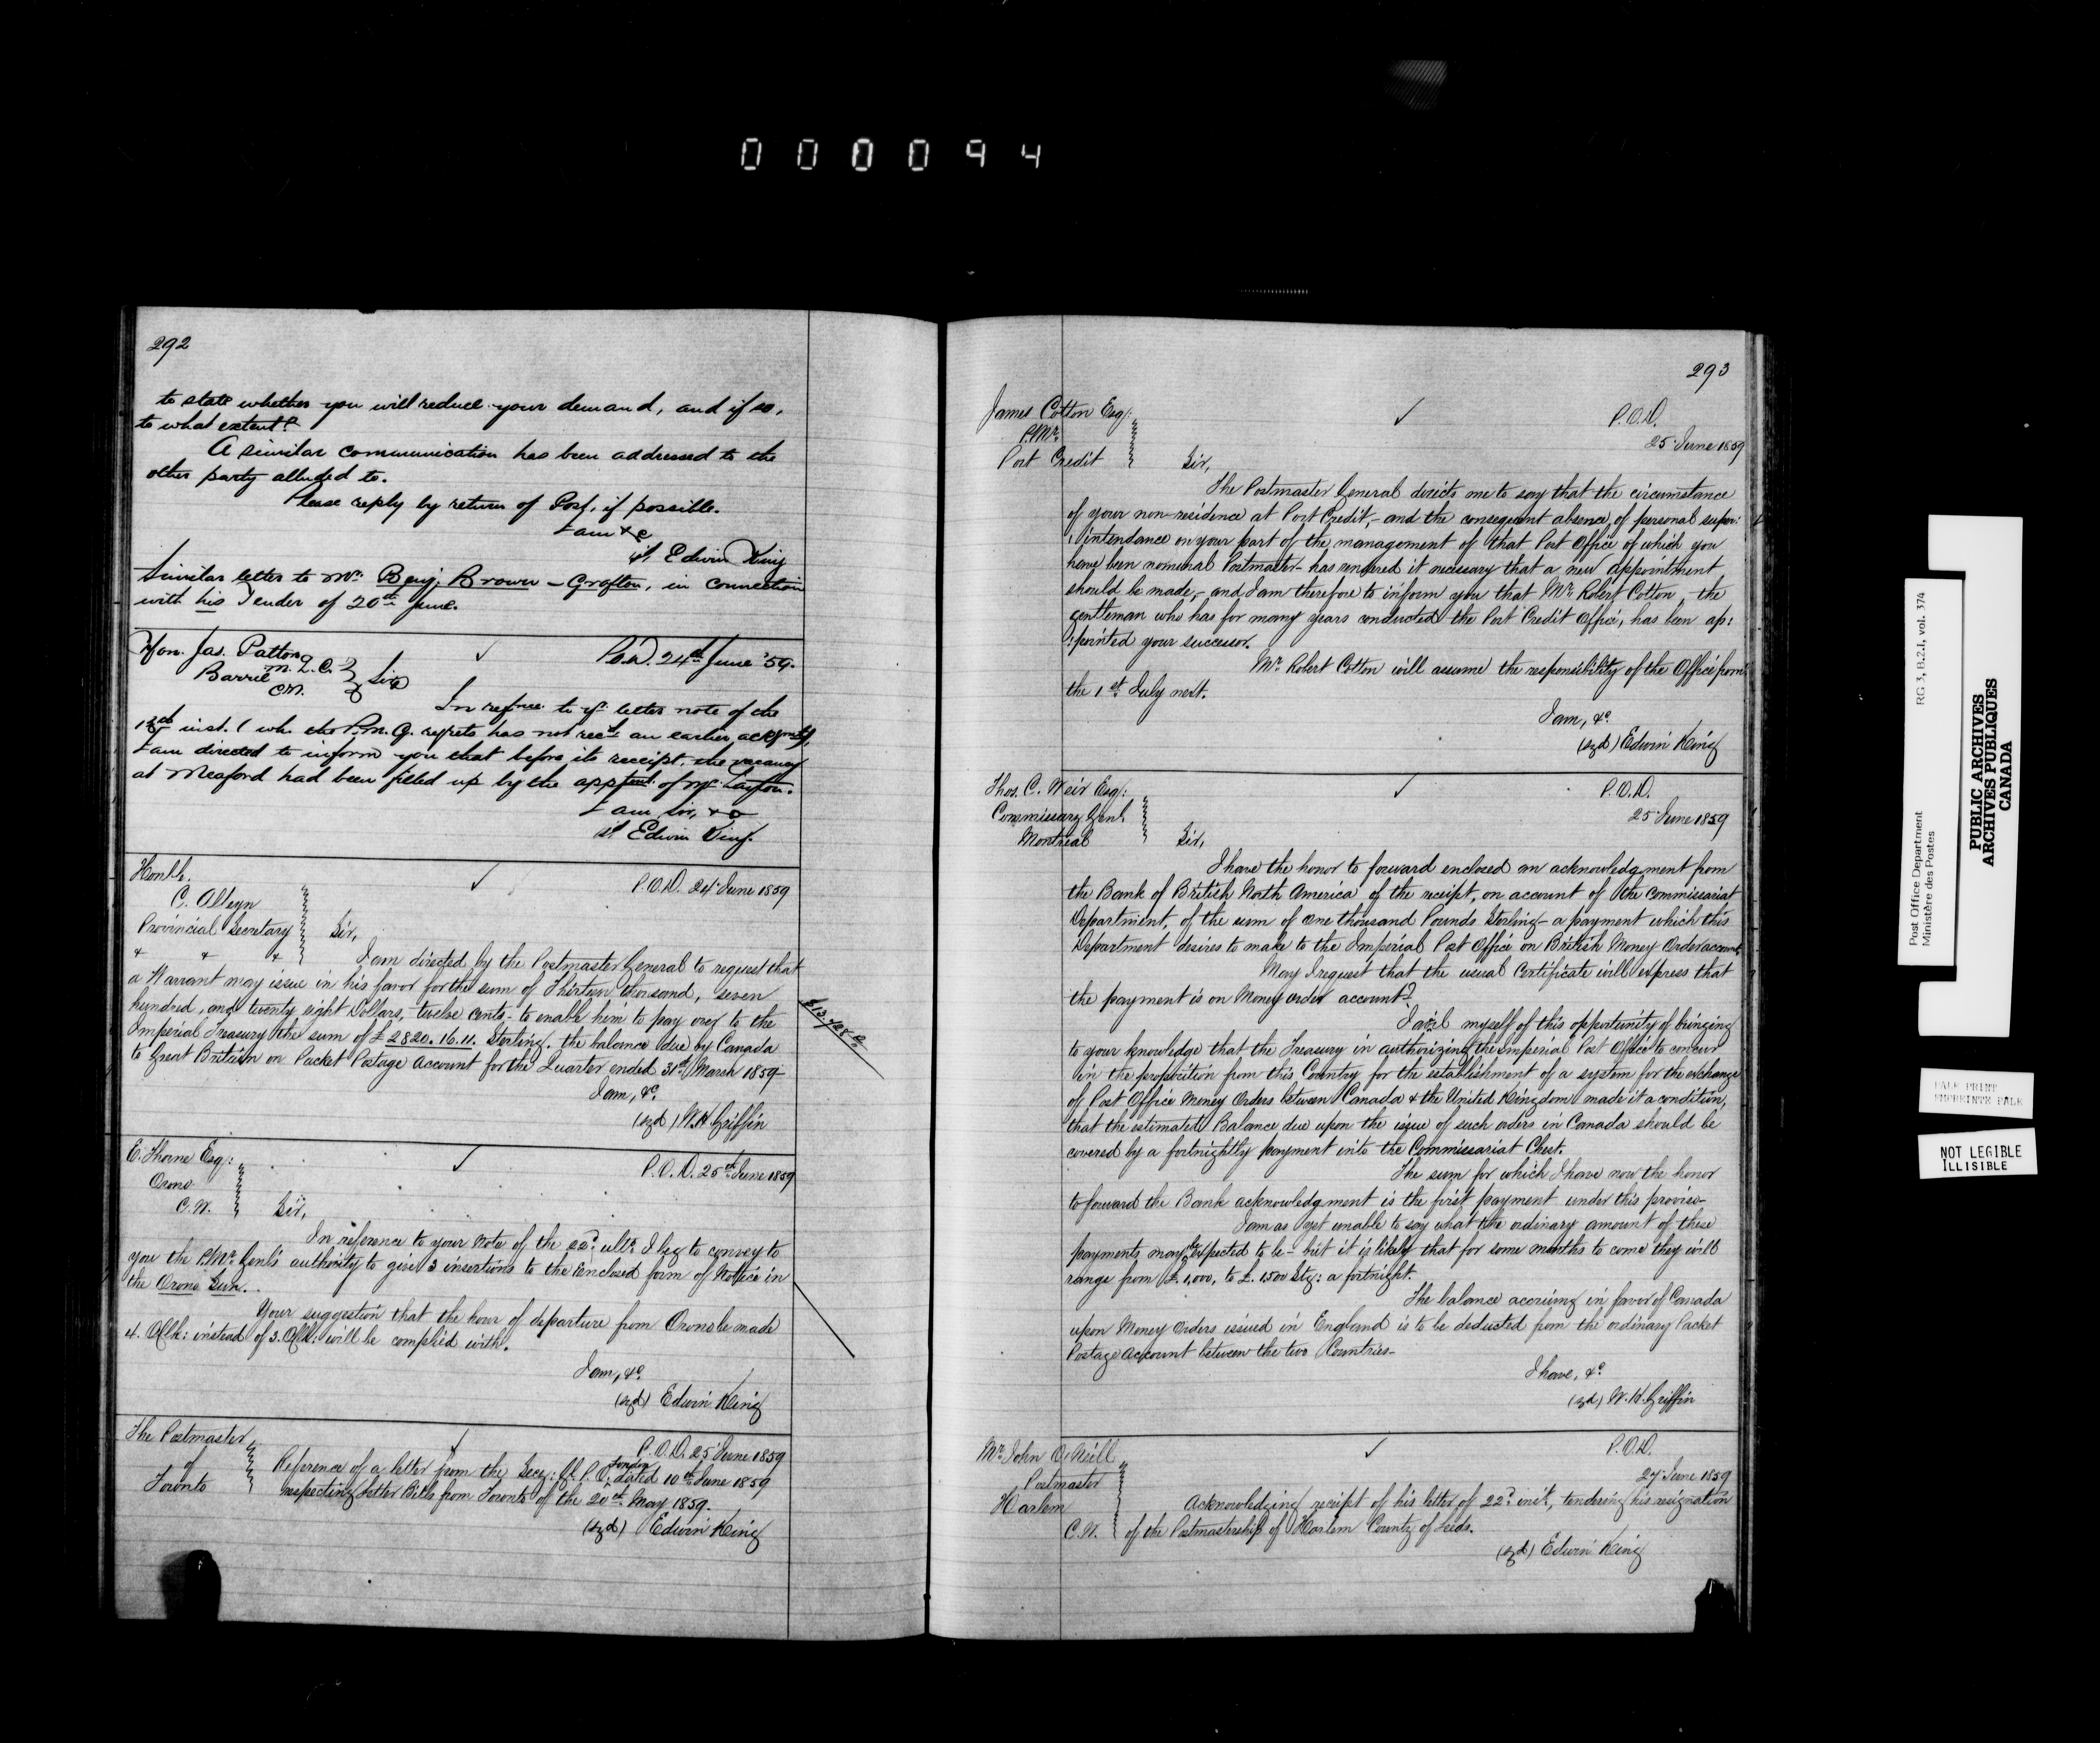 000094
292
to state whether you will reduce your demand, and if so,
to what extent?
A similar communication has been addressed to the
other party alluded to.
Please reply by return of Post, if possible.
I am &c
sd Edwin King
Similar letter to Mr. Benj. Brown – Grafton, in connection
with his Tender of 20th June.
Hon. Jas. Patton
M.L.C.
Barrie
C.W.
✓
P.O.D. 24th June '59.
Sir
In refnce to yr letter note of the
inst. (wh. the P.M.G. regrets has not recd an earlier ackgmt),
I am directed to inform you that before its receipt, the vacancy
at Meaford had been filled up by the apptmt of Mr. Layton.
I am, Sir, &c
sd Edwin King.
Honble.
C. Alleyn
Provincial Secretary
& & &
✓
P.O.D. 24 June 1859
Sir,
I am directed by the Postmaster General to request that
a Warrant may issue in his favor for the sum of Thirteen thousand, seven
hundred, and twenty eight Dollars, twelve cents - to enable him to pay over to the
Imperial Treasury the sum of £2820.16.11. Sterling. the balance due by Canada
to Great Britain on Packet Postage Account for the Quarter ended 31st March 1859-
I am, &c.
(sgd) W.H. Griffin
E. Thorne Esq:
Orono
C.W.
✓
P.O.D. 25th June 1859
Sir,
In reference to your Note of the 22d. ulto. I beg to convey to
you the P.Mr. Genl's authority to give 3 insertions to the Enclosed form of Notice in
the Orono Sun.
Your suggestion that the hour of departure from Orono be made
4. O'Clk: instead of 3. O'Clk: will be complied with.
I am, &c.
(sgd) Edwin King
The Postmaster
of
Toronto
✓
P.O.D. 25 June 1859
Reference of a letter from the Secy: Gl. P.O. London dated 10th June 1859
respecting letter Bills from Toronto of the 20th May 1859.
(sgd) Edwin King
293
James Cotton Esq:
P.Mr.
Port Credit
✓
P.O.D.
25 June 1859
Sir,
The Postmaster General directs me to say that the circumstance
of your non-residence at Port Credit,- and the consequent absence of personal super:
:intendance on your part of the management of that Post Office of which you
have been nominal Postmaster- has rendered it necessary that a new appointment
should be made,- and I am therefore to inform you that Mr. Robert Cotton, the
gentleman who has for many years conducted the Port Credit Office, has been ap:
:pointed your successor.
Mr. Robert Cotton will assume the responsibility of the Office from
the 1st July next.
I am, &c.
(sgd) Edwin King
Thos. C. Weir Esq:
Commissary Genl.
Montreal
✓
P.O.D.
25 June 1859
Sir,
I have the honor to forward enclosed an acknowledgment from
the Bank of British North America of the receipt, on account of the Commissariat
Department, of the sum of one thousand Pounds Sterling- a payment which this
Department desires to make to the Imperial Post Office on British Money Order account.
May I request that the usual Certificate will express that
the payment is on Money Order account?
I avail myself of this opportunity of bringing
to your knowledge that the Treasury in authorizing the Imperial Post Office to concur
in the proposition from this Country for the establishment of a system for the exchange
of Post Office Money Orders between Canada & the United Kingdom made it a condition,
that the estimated Balance due upon the issue of such orders in Canada should be
covered by a fortnightly payment into the Commissariat Chest.
The sum for which I have now the honor
to forward the Bank acknowledgment is the first payment under this proviso-
I am as yet unable to say what the ordinary amount of these
payments may be expected to be- but it is likely that for some months to come they will
range from £.1,000, to £.1500 Stg: a fortnight.
The balance accruing in favor of Canada
upon Money Orders issued in England is to be deducted from the ordinary Packet
Postage Account between the two Countries-
I have, &c.
(sgd) W.H. Griffin
Mr. John O'Neill
Postmaster
Harlem
C.W.
✓
P.O.D.
27 June 1859
Acknowledging receipt of his letter of 22d. inst., tendering his resignation
of the Postmastership of Harlem County of Leeds.
(sgd) Edwin King
Post Office Department
Ministère des Postes
RG 3, B.2.I, vol. 374
PUBLIC ARCHIVES
ARCHIVES PUBLIQUES
CANADA
PALE PRINT
EMPREINTE PALE
NOT LEGIBLE
ILLISIBLE